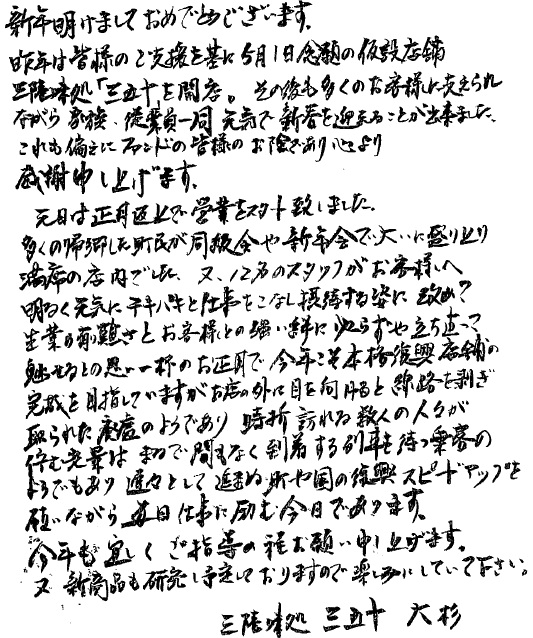 新年明けましておめでとうございます。
昨年は皆様のご支援を基に5月1日念願の仮設店舗
三陸味処「三五十」を開店。その後も多くのお客様に支えられ
ながら家族、従業員一同元気で新春を迎えることが出来ました。
これも偏えにファンドの皆様のお陰であり心より
感謝申し上げます。
元日は正月返上で営業をスタート致しました。
多くの帰郷した町民が同級会や新年会で大いに盛り上り
満席の店内でした。又、12名のスタッフがお客様へ
明るく元気にテキパキと仕事をこなし接待する姿に改めて
生業の有難さとお客様との強い絆に必らずや立ち直って
魅せるとの思い一杯のお正月で今年こそ本格復興店舗の
完成を目指していますがお店の外に目を向けると線路を剥ぎ
取られた廃虚のようであり時折訪れる数人の人々が
佇む光景はまるで間もなく到着する列車を待つ乗客の
ようでもあり遅々として進まぬ町や国の復興スピードアップを
願いながら毎日仕事に励む今日であります。
今年も宜しくご指導の程お願い申し上げます。
又新商品も研究し予定しておりますので楽しみにしていて下さい。
三陸味処 三五十 大杉